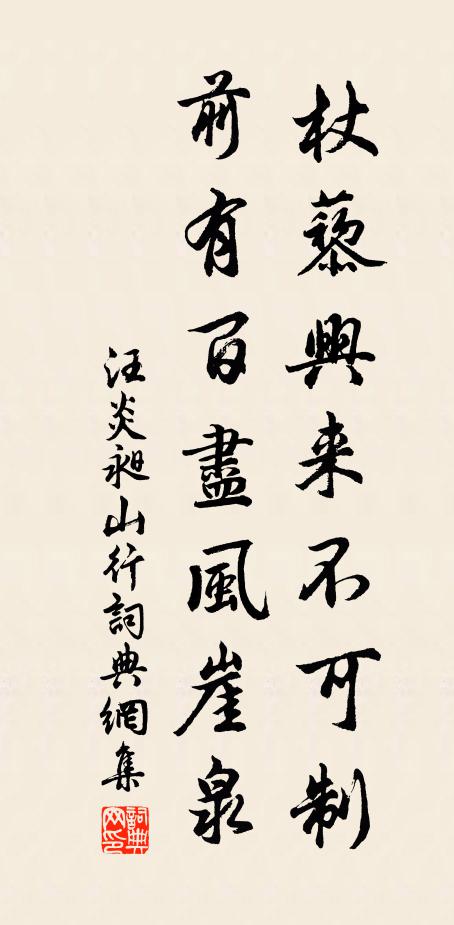 杖藜興来不可制
前有百盡風崖泉
汪炎昶山行詞典網集
詞典网印